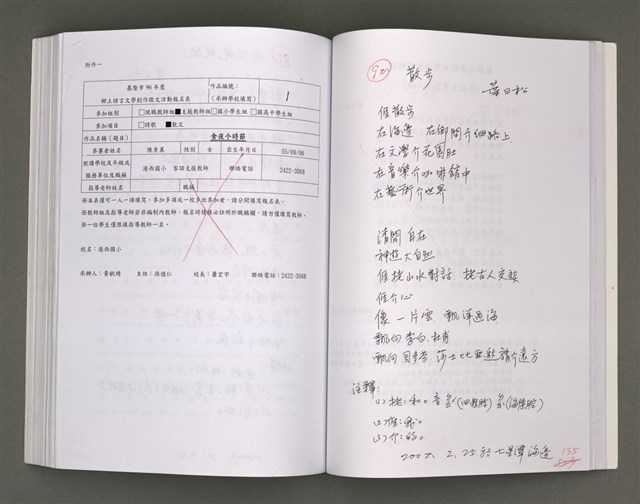 附件一
基隆市96年度
鄉土語言文學創作徵文活動報名表
作品編號：
（承辦學校填寫）
1
參加組別 □現職教師組■支援教師組□國小學生組 □國高中學生組
參加項目 □詩歌 ■散文
作品名稱（題目） 食夜个時節
參賽者姓名 陳素真 性別 女 出生年月日 55/09/06
就讀學校及年級或服務單位及職稱 港西國小 客語支援教師 聯絡電話 2422-3068
指導老師姓名 職稱
※本表僅可一人一項填寫，參加多項或一校多位參加者，請分開填寫報名表。
※教師組及指導老師若非編制內教師，報名時請務必註明於職稱欄，請勿僅填寫教師。
※一位學生僅限填指導教師一名。
校名：港西國小
承辦人：黃毓琦 主任：孫德仁 校長：蕭宏宇 聯絡電話：2422-3068
90
散步
葉日松
𠊎散步
在海邊 在鄉間介細路上
在文學介花園肚
在音樂介咖啡館中
在藝術介世界
清閒 自在
神遊大自然
𠊎挓山水對話 挓古人交談
𠊎介心
像一片雲 飄洋過海
飄向李白、杜甫
飄向貝多芬、莎士比亞遐講介遠方
註釋：
(1)挓：和。音 (四縣腔) (海陸腔)
(2)𠊎：我。
(3)介：的。
2007. 2. 25於七星潭海邊
135